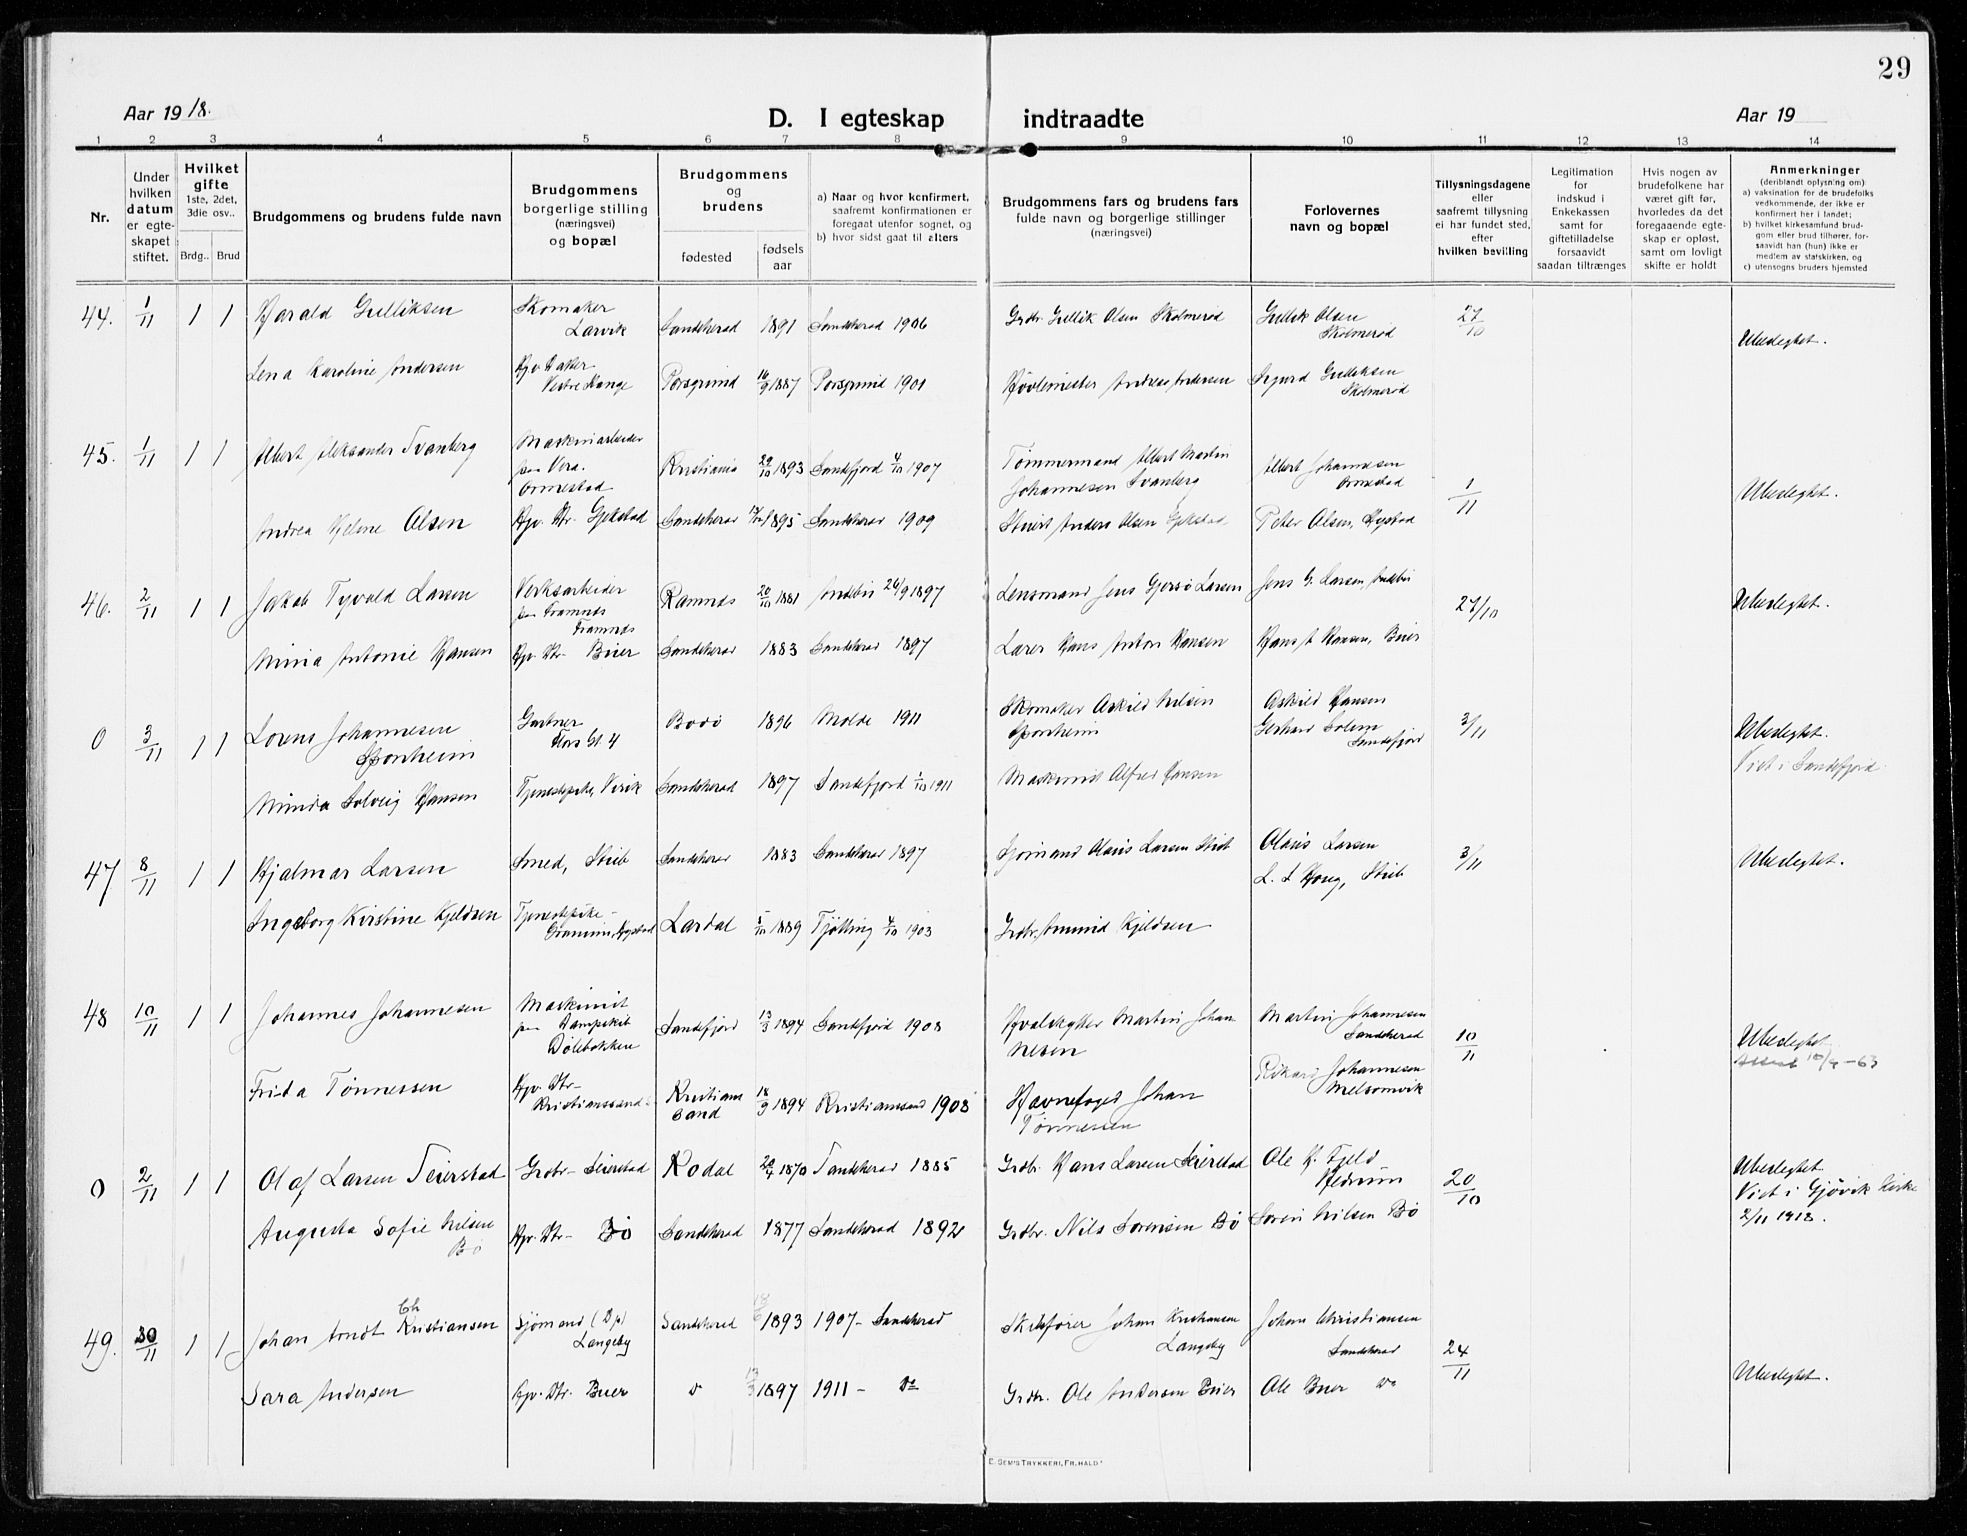 29
Aar 1918.
D. I egteskap indtraadte
Aar 19
1 2 3 4 5 6 7 8 9 10 11 12 13 14
Nr.
Under hvilken datum er egteskapet stiftet.
Hvilket gifte
1ste, 2det, 3die osv..
Brdg.. Brud
Brudgommens og brudens fulde navn
Brudgommens borgerlige stilling (næringsvei) og bopæl
Brudgommens og brudens
fødested
fødsels aar
a) Naar og hvor konfirmert, saafremt konfirmationen er foregaat utenfor sognet, og
b) hvor sidst gaat til alters
Brudgommens fars og brudens fars fulde navn og borgerlige stillinger (næringsvei)
Forlovernes navn og bopæl
Tillysningsdagene eller saafremt tillysning ei har fundet sted, efter hvilken bevilling
Legitimation for indskud i Enkekassen samt for giftetilladelse forsaavidt saadan tiltrænges
Hvis nogen av brudefolkene har været gift før, hvorledes da det foregaaende egteskap er opløst, samt om lovligt skifte er holdt
Anmerkninger
(deriblandt oplysning om)
a) vaksination for de brudefolks vedkommende, der ikke er konfirmert her i landet;
b) hvilket kirkesamfund brudgom eller brud tilhører, forsaavidt han (hun) ikke er medlem av statskirken, og
c) utensogns bruders hjemsted
44. 1/11 1 1 Harald Gulliksen Skomaker Larvik Sandeherad 1891 Sandeherad 1906 Grdbr. Gullik Olsen Skolmerød Gullik Olsen Skolmerød 27/10 Ubeslegtet.
Lena Karoline Andersen Vestre Hange Porsgrund 16/9 1887 Porsgrund 1901 Høvlemester Andreas Andersen Sigurd Gulliksen Skolmerød
45. 1/11 1 1 Albert Aleksander Svanberg Maskinarbeider paa Vera. Ormestad Kristiania 29/10 1893 Sandefjord 4/10 1907 Tømmermand Albert Martin Johannesen Svanberg Albert Johannesen Ormestad 1/11 Ubeslegtet.
Andrea Helene Olsen Hjv. Dtr. Gjekstad Sandeherad 1895 Sandeherad 1909 Anders Olsen Gjekstad Peter Olsen, Nystad
46. 2/11 1 1 Jakob Tyvald Larsen Verksarbeider paa Framnæs Framnæs Ramnes 20/10 1881 Andebu 26/9 1897 Lensmand Jens Gjersø Larsen Jens G. Larsen, Andebu 27/10 Ubeslegtet.
Minia Antonie Hansen Hjv. Dtr. Buer Sandeherad 1883 Sandeherad 1897 Lærer Hans Anton Hansen Hans A Hansen, Buer
0 3/11 1 1 Lorens Johannesen Sponheim Gartner Thors Gt. 4 Bodø 1896 Molde 1911 Skomaker Askild Nilsen Sponheim Askild Hansen Gerhard Solem Sandefjord 3/11 Ubeslegtet. Viet i Sandefjord.
Minda Solveig Hansen Tjenestepike, Virik Sandeherad 1897 Sandefjord 1/10 1911 Maskinist Alfred Hansen
47 8/11 1 1 Hjalmar Larsen Smed, Stub Sandeherad 1883 Sandeherad 1897 Sjømand Olaus Larsen Stub Olaus Larsen L. A Haug, Stub 3/11 Ubeslegtet.
Ingeborg Kirstine Kjeldsen Tjenestepike - Lardal 5/10 1889 Tjølling 4/10 1903 Grdbr. Amund Kjeldsen
48 10/11 1 1 Johannes Johannesen Maskinist paa Dampskib Dølebakken Sandefjord 13/3 1894 Sandefjord 1908 Hvalskytter Martin Johannesen Martin Johannesen Sandeherad 10/11 Ubeslegtet
Frida Tönnessen Hjv. Dtr - Kristianssand - Kristianssand 18/9 1894 Kristianssand 1908 Havnefoged Johan Tönnessen Rikard Johannesen Melsomvik
0 2/11 1 1 Olaf Larsen Seierstad Grdbr - Seierstad Kodal 29/4 1870 Sandeherad 1885 Grdbr. Hans Larsen Seierstad Ole H. Fjeld Hedrum 20/10 Ubeslegtet. Viet i Gjøvik kirke 2/11 1918.
Augusta Sofie Nilsen Bø Hjv. Dtr - Bö Sandeherad 1877 Sandeherad 1892 Grdbr. Nils Sørensen Bö Søren Nilsen Bö
49. 30/11 1 1 Johan Arndt Ch Kristiansen Sjømand (D/s) Langeby Sandeherad 18/6 1893 1907 - Sandeherad Skibsfører Johan Kristiansen Langeby Johan Christiansen Sandeherad 24/11 Ubeslegtet.
Sara Andersen Hjv. Dtr. Buer 13/3 1897 1911 - Do Grdbr. Ole Andersen Buer Ole Buer Do
E. SEM'S TRYKKERI, FR.HALD